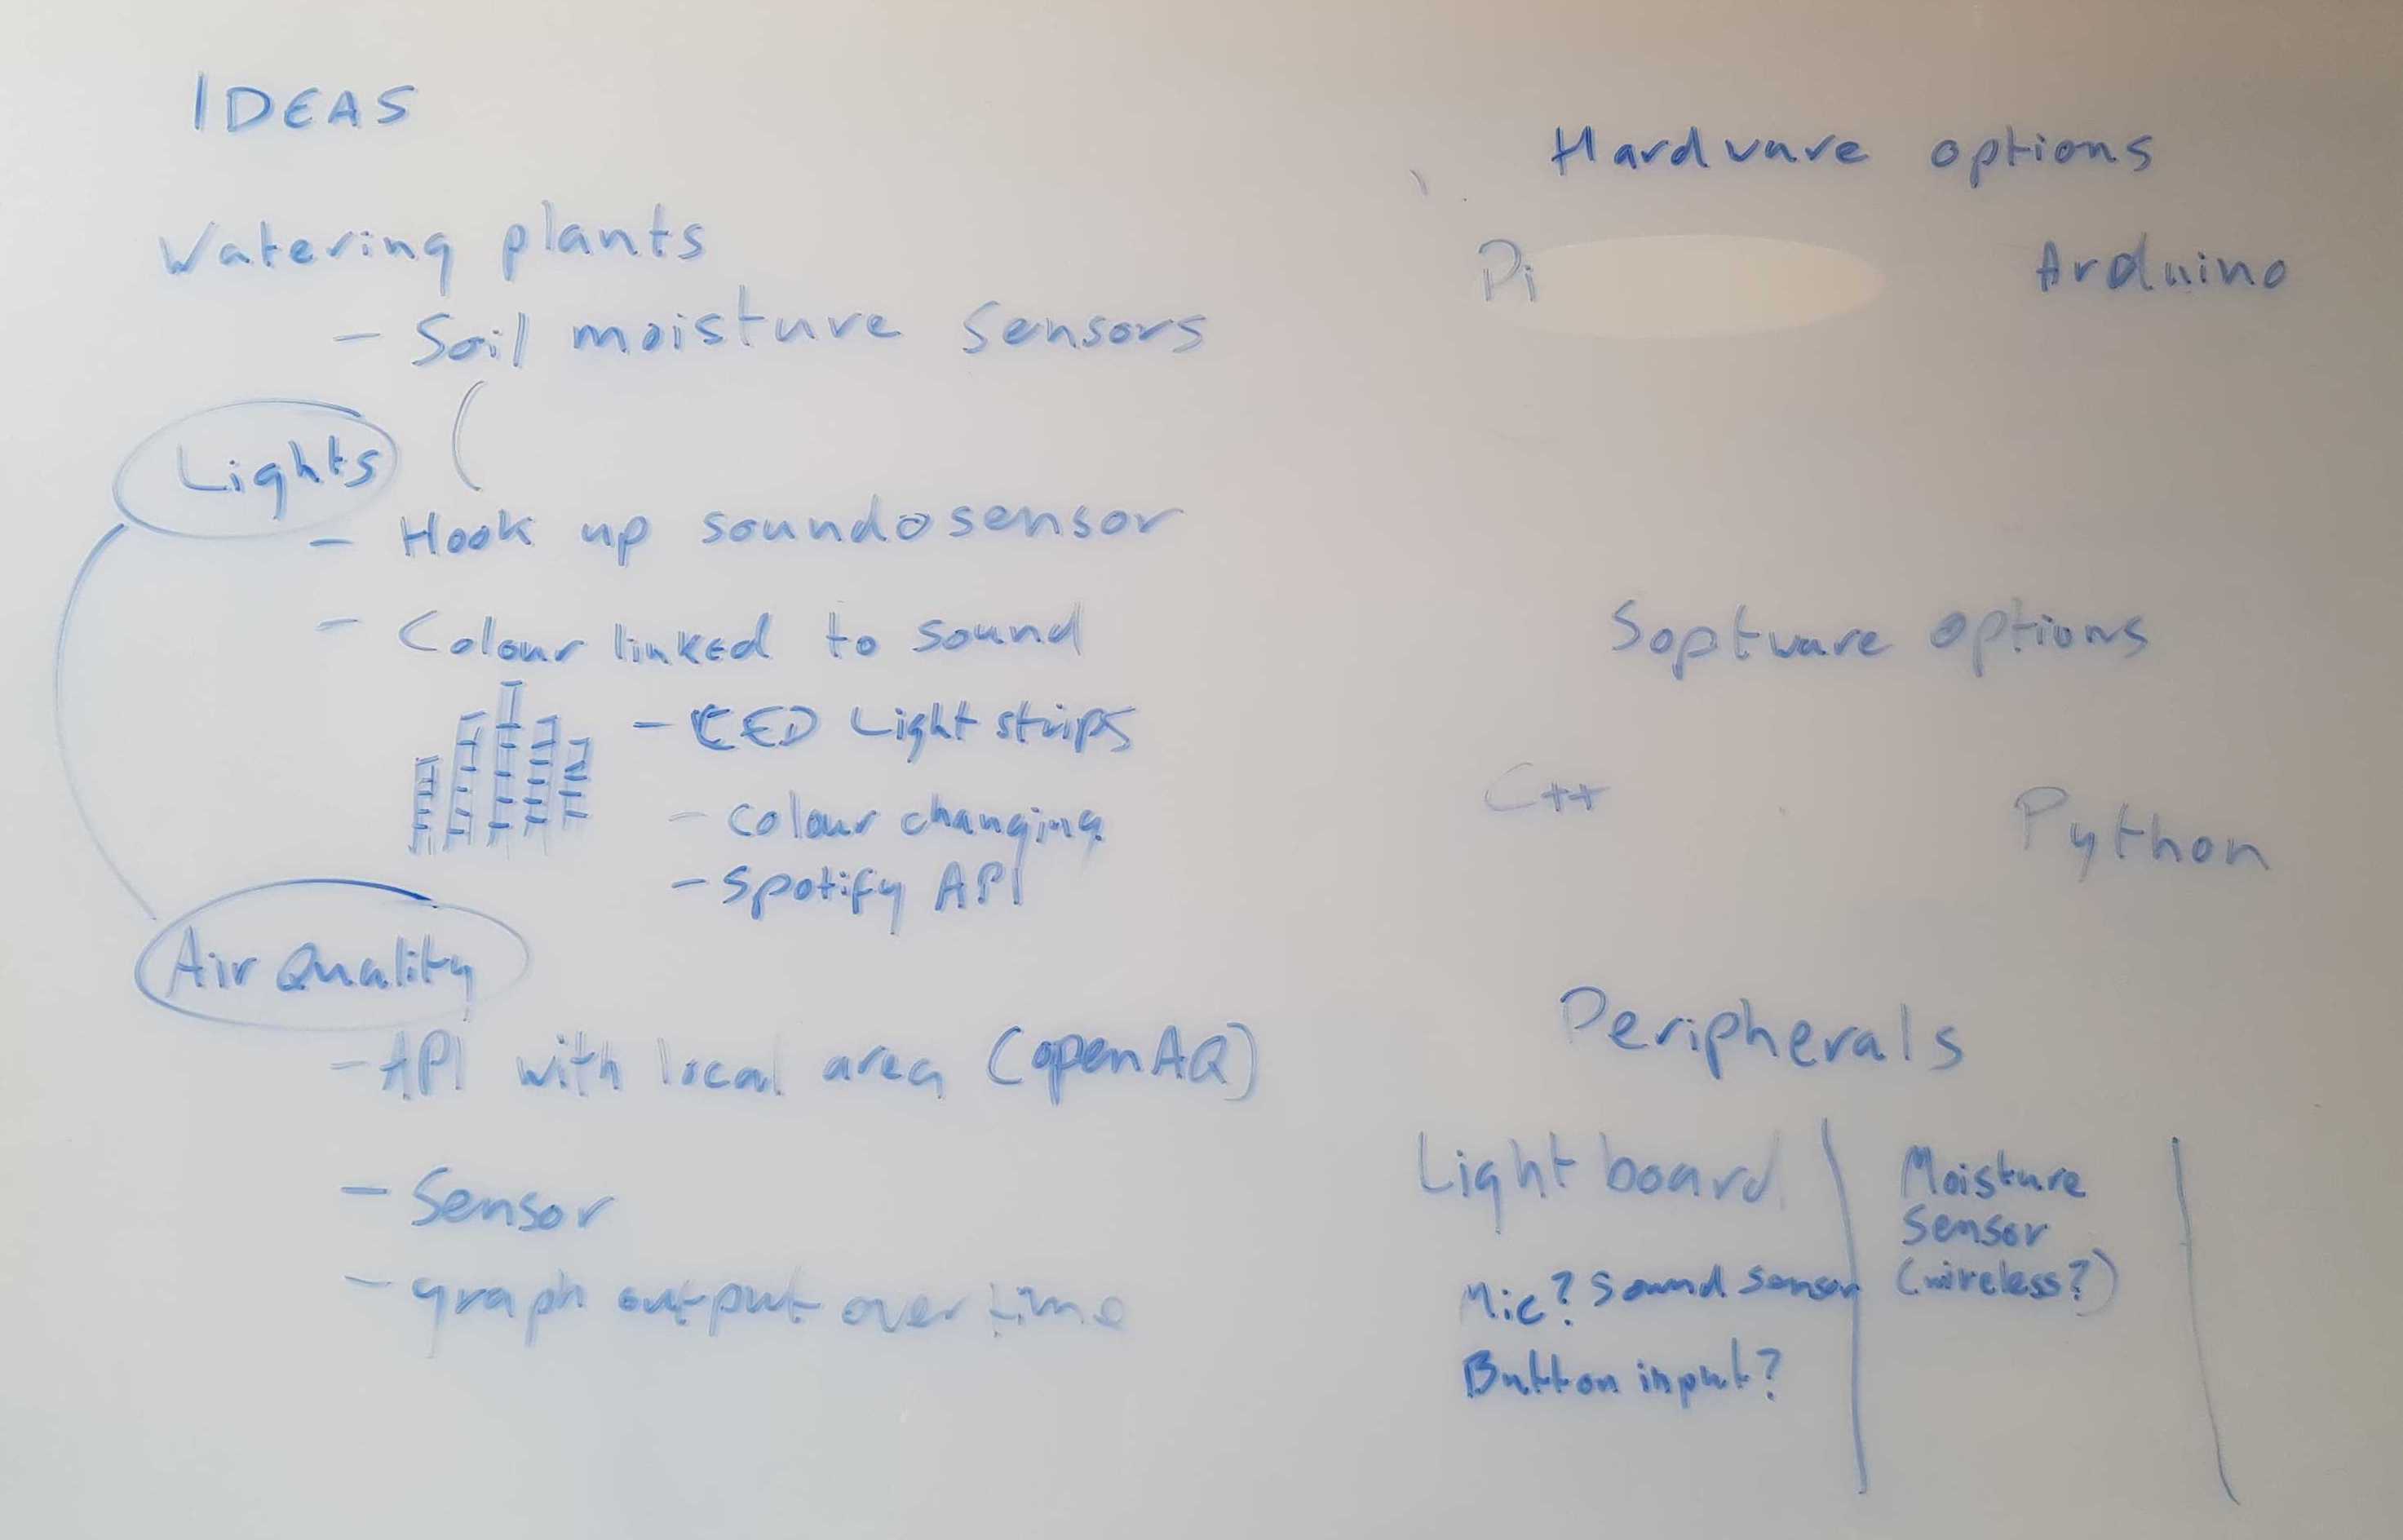 IDEAS
Watering plants
- Soil moisture sensors
Lights
- Hook up sound sensor
- Colour linked to sound
- LED Light strips
- colour changing
- Spotify API
Air Quality
- API with local area (openAQ)
- Sensor
- graph output over time
Hardware options
Pi Arduino
Software options
C++ Python
Peripherals
Light board
Mic? Sound sensor
Button input?
Moisture
Sensor
(wireless?)